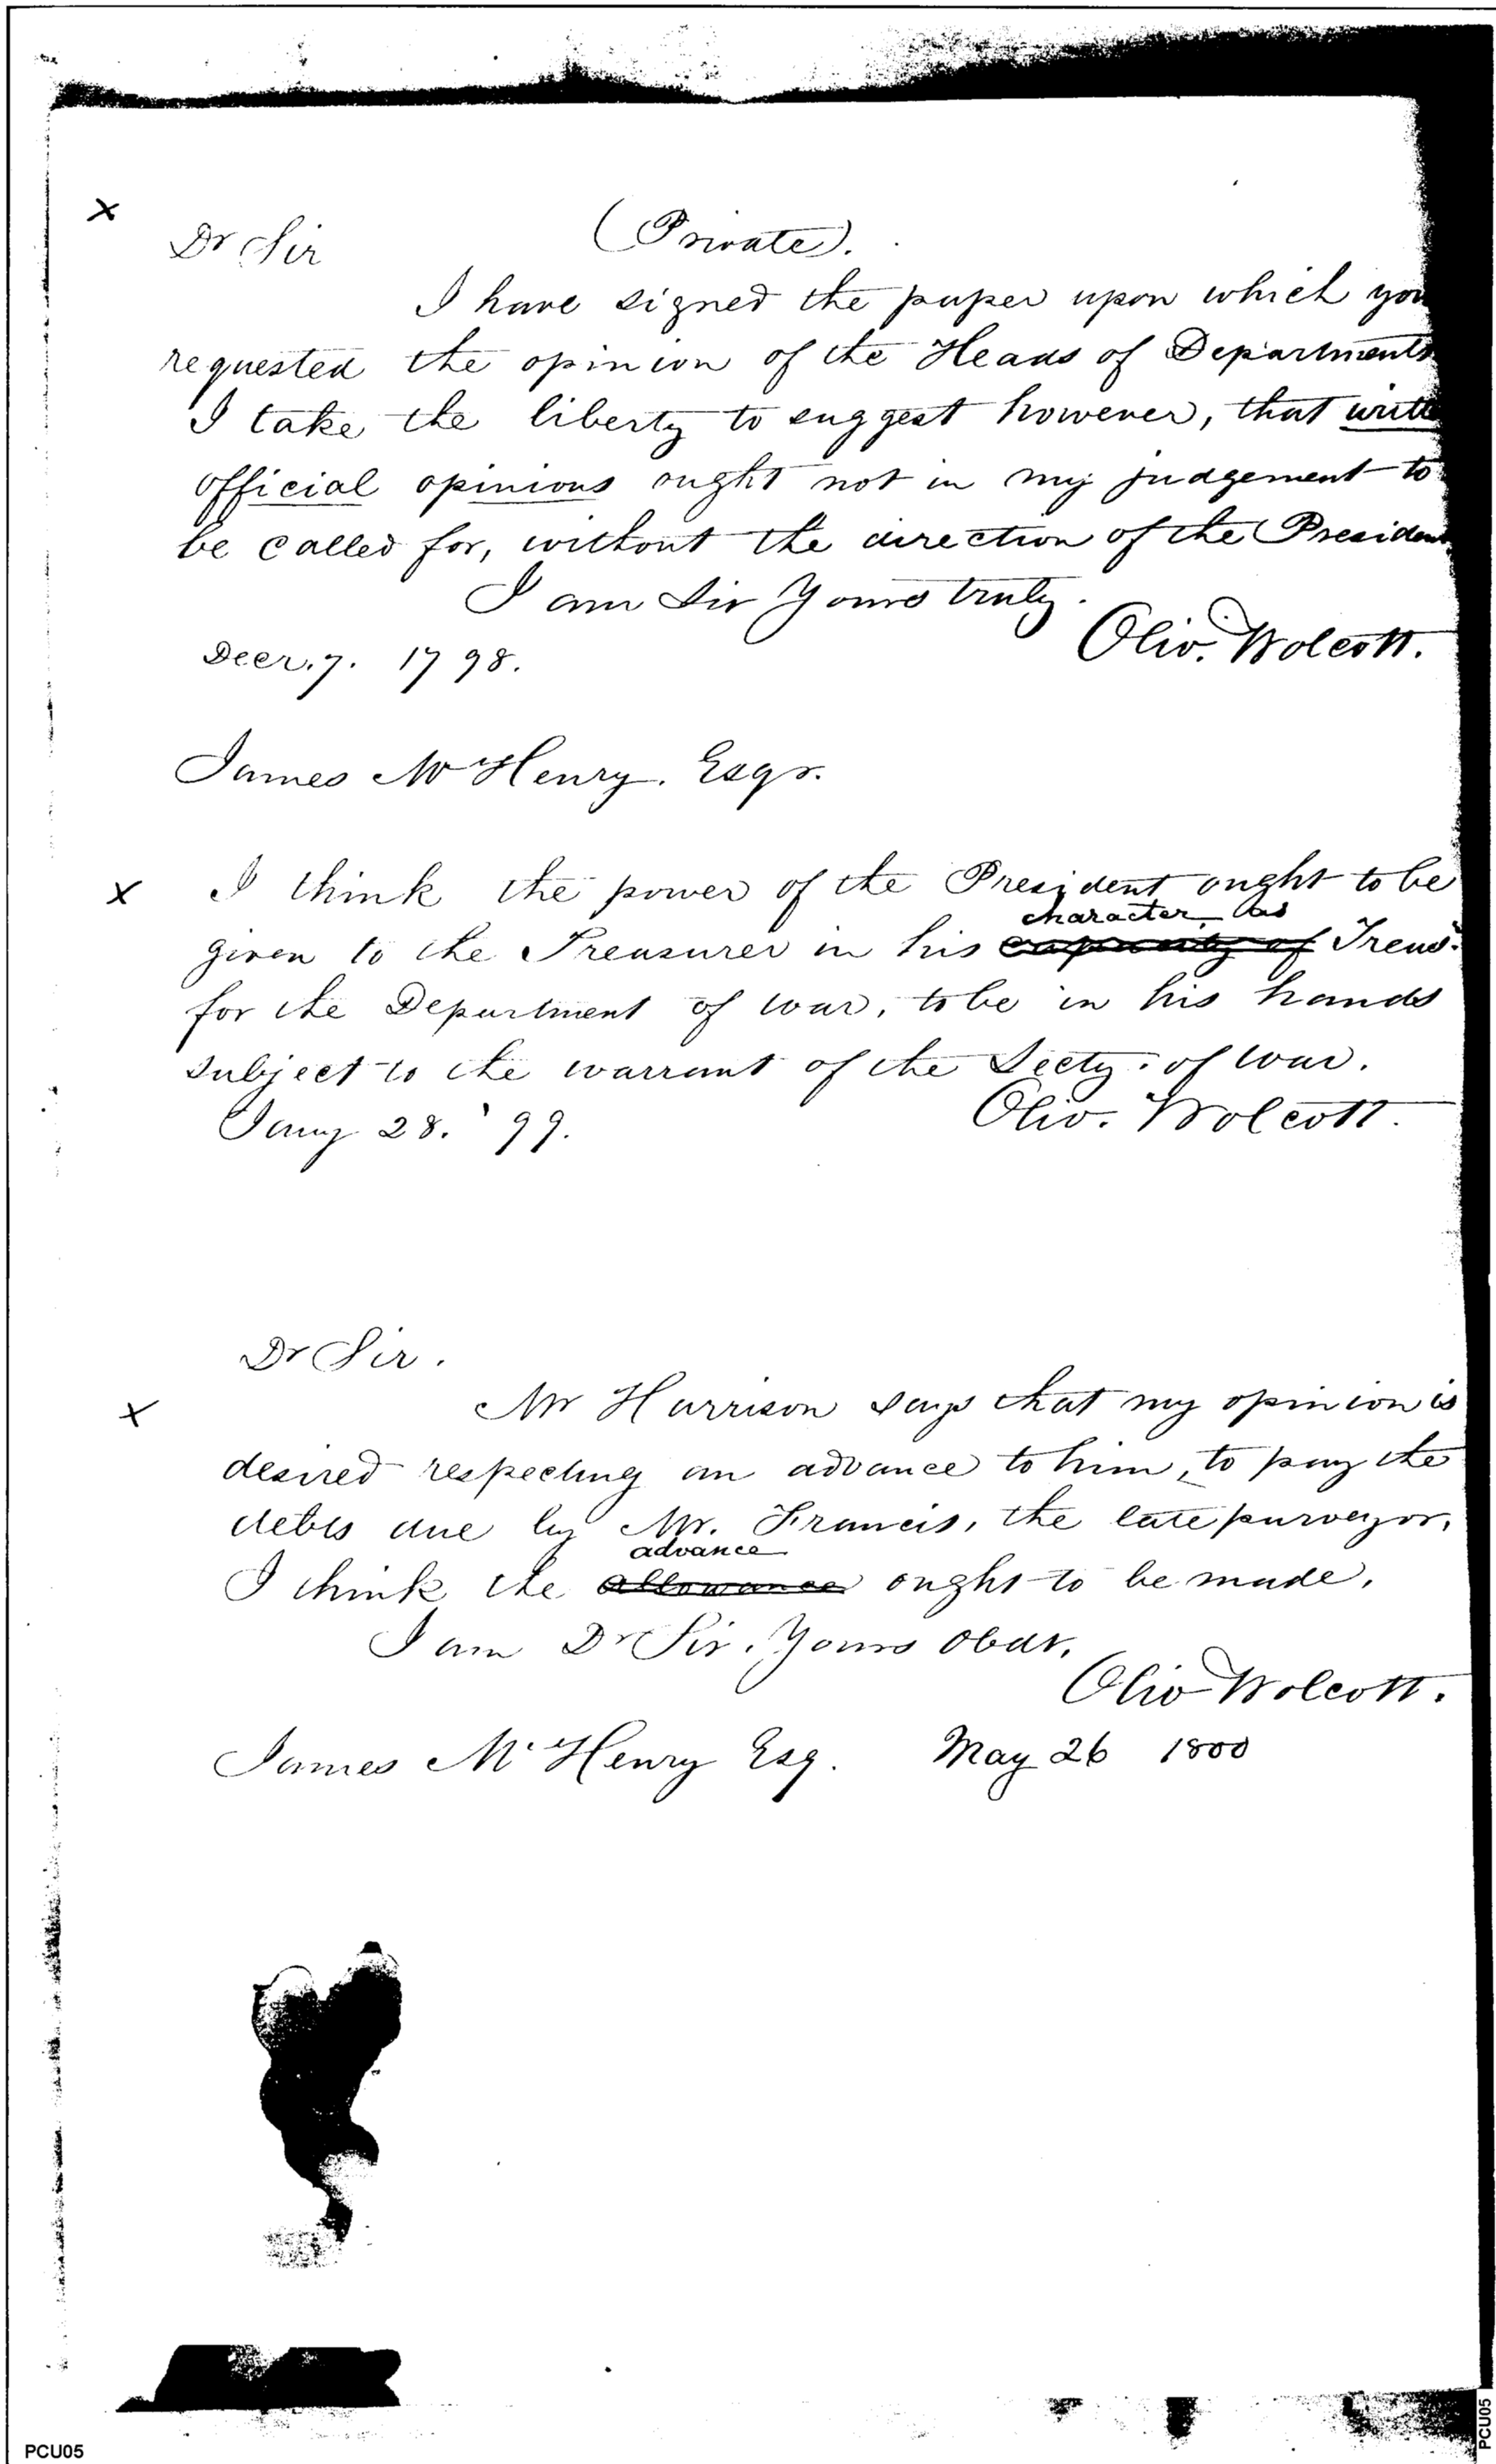 x
Dr Sir (Private).
I have signed the paper upon which you
requested the opinion of the Heads of Departments
I take the liberty to suggest however, that
official opinions ought not in my judgement to
be called for, without the direction of the President
I am Sir Yours truly.
Oliv. Wolcott.
Decr. 7. 1798.
James McHenry. Esqr.
x I think the power of the President ought to be
character as
given to the Treasurer in his capacity of Treas.
for the Department of war, to be in his hands
subject to the warrant of the Secty. of war.
Oliv. Wolcott.
Jany 28. '99.
Dr Sir.
x Mr Harrison says that my opinion is
desired respecting an advance to him, to pay the
debts due by Mr. Francis, the late purveyor,
advance
I think the allowance ought to be made.
I am Dr Sir. Yours Obdt.
Oliv Wolcott.
James McHenry Esq. May 26 1800
PCU05
PCU05